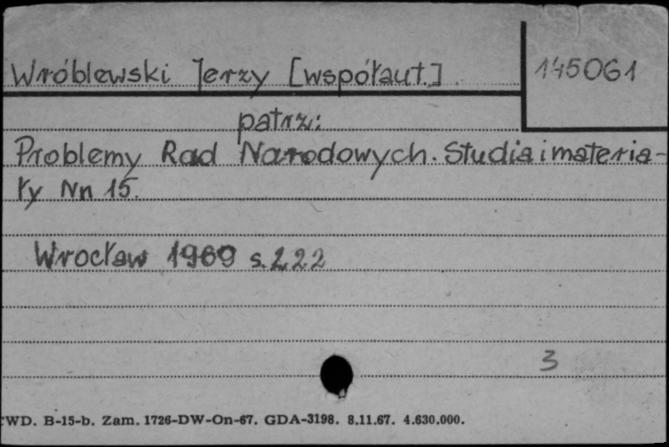 Wróblewski Jerzy [współaut.]
145061
patrz:
Problemy Rad Narodowych. Studia i materia-
ły Nr 15.
Wrocław 1969 s. 222
3
CWD. B-15-b. Zam. 1726-DW-On-67. GDA-3198. 8.11.67. 4.630.000.